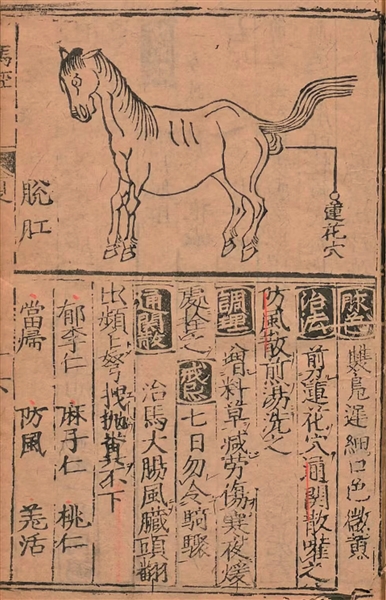 脫肛
蓮花穴
脉色 雙鳧遲細口色微黄
治法 剪蓮花穴通關散嚾之
防風散煎湯洗之
調理 增料草减劳傷寒夜煖
處養之 戒忌 七日勿令騎驟
通關散 治馬大腸風臓頭翻
出頻〻努抛糞不下
郁李仁 麻子仁 桃仁
當歸 防風 羗活
馬經